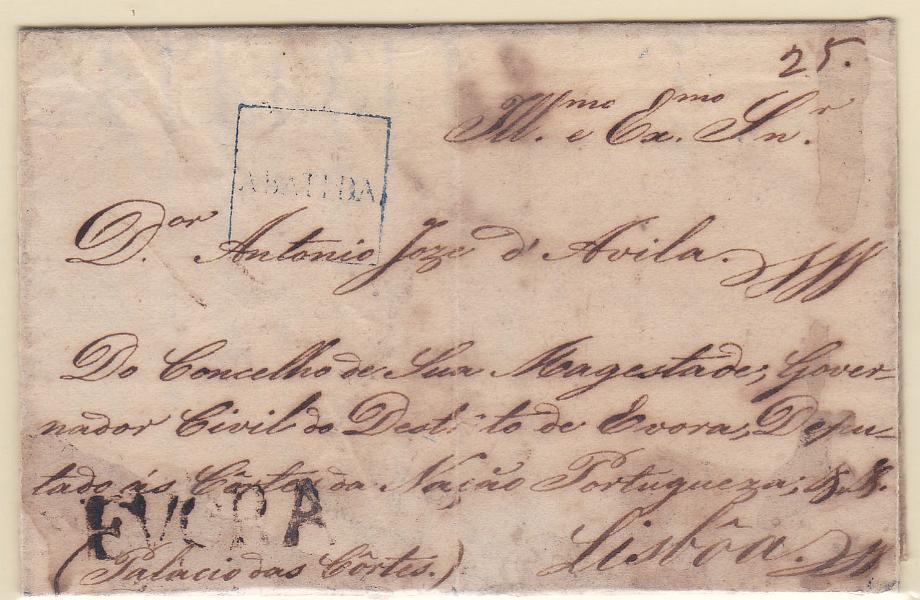 25.
Ill.mo e Ex.mo Sn.r
ABATIDA
D.or Antonio Joze d' Avila.
Do Concelho de Sua Magestade, Gover-
nador Civil do Destricto de Evora, Depu-
tado ás Côrtes da Nação Portugueza; &.&.
EVORA
(Palacio das Côrtes.)
Lisbôa.